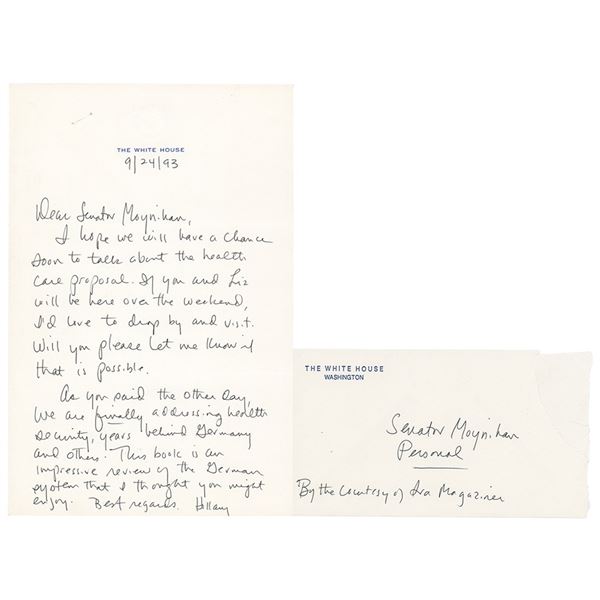 THE WHITE HOUSE
9/24/93
Dear Senator Moynihan,
I hope we will have a chance
soon to talk about the health
care proposal. If you and Liz
will be here over the weekend,
I'd love to drop by and visit.
Will you please let me know if
that is possible.
As you said the other day,
We are finally addressing health
security, years behind Germany
and others. This book is an
impressive review of the German
system that I thought you might
enjoy. Best regards. Hillary
THE WHITE HOUSE
WASHINGTON
Senator Moynihan
Personal
By the courtesy of Ira Magaziner